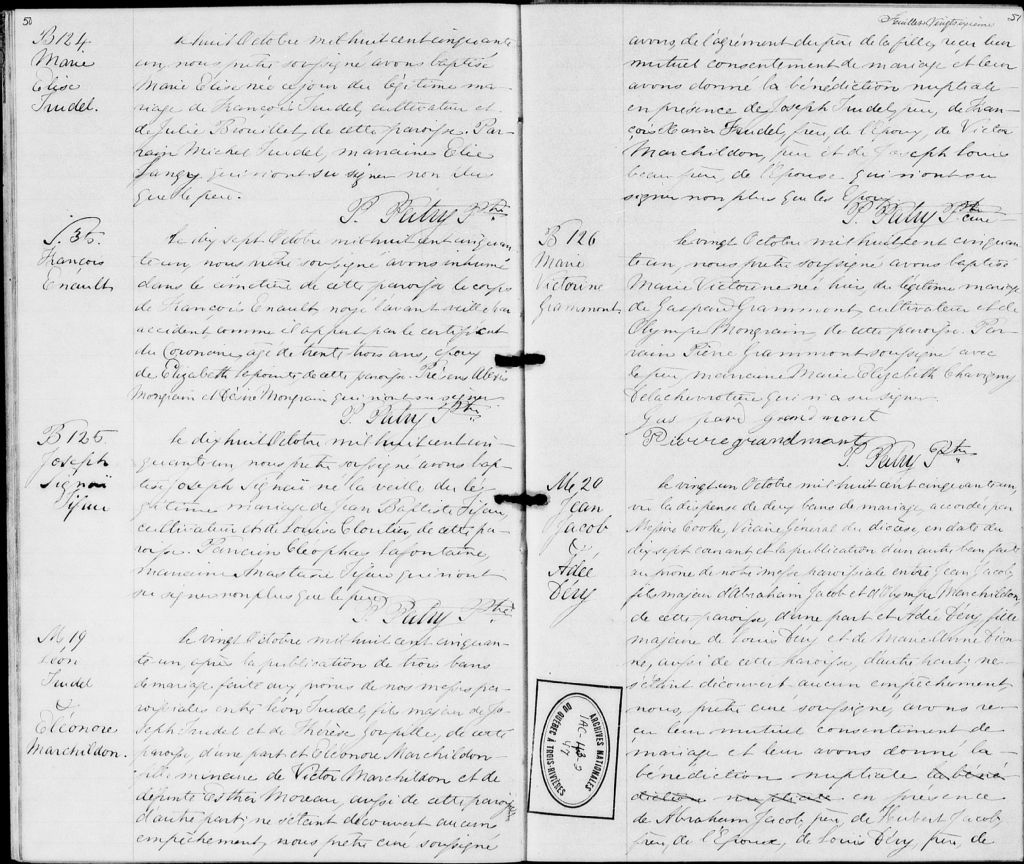 50
B 124.
Marie
Elise
Trudel.
Le huit Octobre mil huit cent cinquante
un, nous prêtre soussigné avons baptisé
Marie Elise née ce jour du légitime ma-
riage de François Trudel, cultivateur et
de Julie Brouillet, de cette paroisse. Par-
rain Michel Trudel, marraine Elie
qui n'ont su signer non plus
que le père.
P. Patry Ptre
S. 36.
François
Enault
Le dix sept Octobre mil huit cent cinquan-
te un, nous prêtre soussigné avons inhumé
dans le cimetière de cette paroisse le corps
de François Enault, noyé l'avant veille par
accident, comme il appert par le certificat
du Coronaire, agé de trente trois ans, époux
de Elizabeth Lapointe de cette paroisse. Présens Alexis
Mongrain et Mongrain qui n'ont su signer
P. Patry Ptre
B 125.
Joseph
Signaï
Tifau
Le dix huit Octobre mil huit cent cin-
quante un nous prêtre soussigné avons bap-
tisé Joseph Signaï né la veille du lé-
gitime mariage de Jean Baptiste
cultivateur et de Louise Cloutier de cette pa-
roisse. Parrain Cléophas Lafontaine,
marraine Anastasie qui n'ont
su signer non plus que le père.
P. Patry Ptre
M 19
Léon
Trudel
&
Eléonore
Marchildon.
Le vingt Octobre mil huit cent cinquan-
te un, après la publication de trois bans
de mariage faite aux prônes de nos messes pa-
roissiales entre Léon Trudel, fils majeur de Jo-
seph Trudel et de Thérèse de cette
paroisse, d'une part et Eléonore Marchildon
fille mineure de Victor Marchildon et de
défunte Esther Moreau, aussi de cette paroisse
d'autre part; ne s'étant découvert aucun
empêchement, nous prêtre curé soussigné
51
Feuillet Vingt sixième
avons, de l'agrément du père de la fille, reçu leur
mutuel consentement de mariage et leur
avons donné la bénédiction nuptiale
en présence de Joseph Trudel, père, de Fran-
çois Xavier Trudel, frère, de l'époux, de Victor
Marchildon, père et de Joseph
beau frère, de l'épouse qui n'ont su
signer non plus que les Epoux
P. Patry Ptre curé
B 126
Marie
Victorine
Grammont
Le vingt Octobre mil huit cent cinquan-
te un, nous prêtre soussigné avons baptisé
Marie Victorine née hier, du légitime mariage
de Gaspard Grammont, cultivateur et de
Olympe Mongrain, de cette paroisse. Par-
rain Pierre Grammont soussigné avec
le père, marraine Marie Elizabeth Chavigny
Delachevrotière qui n'a su signer.
Gas pard grandmont
Pierre grandmont
P. Patry Ptre
M. 20
Jean
Jacob
&
Adée
Déry
Le vingt un Octobre mil huit cent cinquante un,
vu la dispense de deux bans de mariage, accordée par
Messire Cooke, Vicaire Général du diocèse, en date du
dix sept courant et la publication d'un autre ban faite
au prône de notre messe paroissiale entre Jean Jacob,
fils majeur d'Abraham Jacob et d'Olympe Marchildon,
de cette paroisse, d'une part et Adée Déry, fille
majeure de Louis Déry et de Marie Anne Dion-
ne, aussi de cette paroisse, d'autre part; ne
s'étant découvert aucun empêchement,
nous, prêtre curé soussigné, avons re-
çu leur mutuel consentement de
mariage et leur avons donné la
bénédiction nuptiale la béné
diction nuptiale en présence
de Abraham Jacob, père, de Hubert Jacob,
frère, de l'Epoux, de Louis Déry, père, de
ARCHIVES NATIONALES
DU QUÉBEC A TROIS-RIVIÈRES